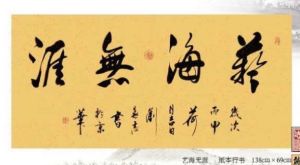 藝海無涯
歲次
丙申
荷
月吉日
劉
志
書
於京
華
艺海无涯 纸本行书 138cm×69cm